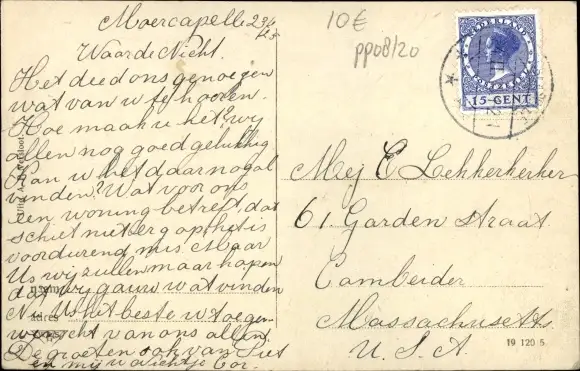 Moercapelle 23/4
Waarde Nicht.
Het deed ons genoegen
wat van u te hooren.
Hoe maak u het? wy
allen nog goed gelukkig
Kan u het daar nogal
vinden? Wat voor ons
een woning betreft dat
schiet niet erg op het is
voordurend mis. Maar
Us wij zullen maar hopen
dat wy gauw wat vinden
Nu Us het beste u toegen-
wenscht van ons allen.
De groeten ook van Siet
en mij u nichtje Cor.
10€
pp08/20
NEDERLAND
15 CENT
Mej E Lekkerkerker
61. Garden straat
Cambeider
Massachusetts
U.S.A.
19 120 5